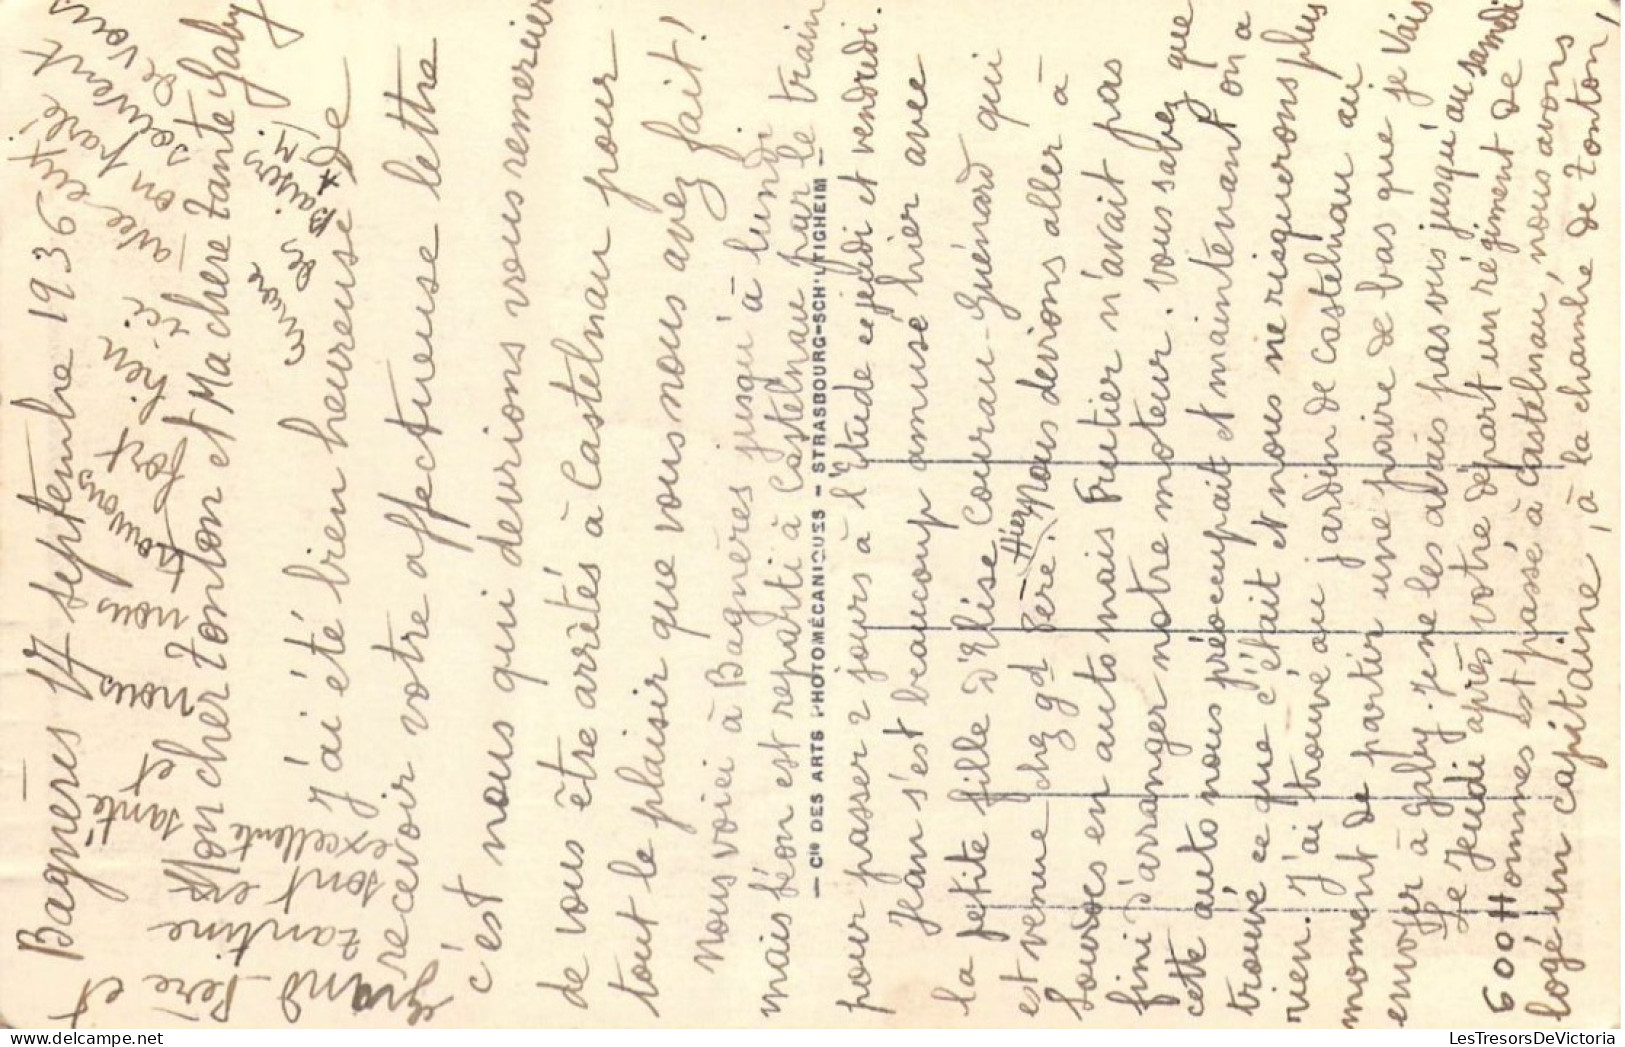 Bagnères 17 septembre 1936
Mon cher Tonton et Ma chère Tante Gaby
J'ai été bien heureuse de
recevoir votre affectueuse lettre
c'est nous qui devrions vous remercier
de vous être arrêtés à Castelnau pour
tout le plaisir que vous nous avez fait!
Nous voici à Bagnères jusqu'à lundi
mais Léon est reparti à Castelnau par le train
pour passer 2 jours à l'Étude ce jeudi et vendredi.
Jean s'est beaucoup amusé hier avec
la petite fille d'Elise Courau-Guénard qui
est venue chez gd Père. - Hier, Nous devions aller à
Lourdes en auto mais Frutier n'avait pas
fini d'arranger notre moteur. Vous savez que
cette auto nous préoccupait et maintenant on a
trouvé ce que c'était et nous ne risquerons plus
rien. J'ai trouvé au jardin de Castelnau au
moment de partir une paire de bas que je vais
envoyer à Gaby. Je ne les avais pas vus jusqu'au samedi
Le Jeudi après votre départ un régiment de
600 Hommes est passé à Castelnau, nous avons
logé un capitaine, à la chambre de Tonton,
Grand Père et
Tantine
sont en
excellente
santé et
nous nous
trouvons
fort bien
ici
avec eux
on parle
souvent
de vous
encore
des Baisers
M.
— Cie DES ARTS PHOTOMÉCANIQUES — STRASBOURG-SCHILTIGHEIM —
LesTresorsDeVictoria